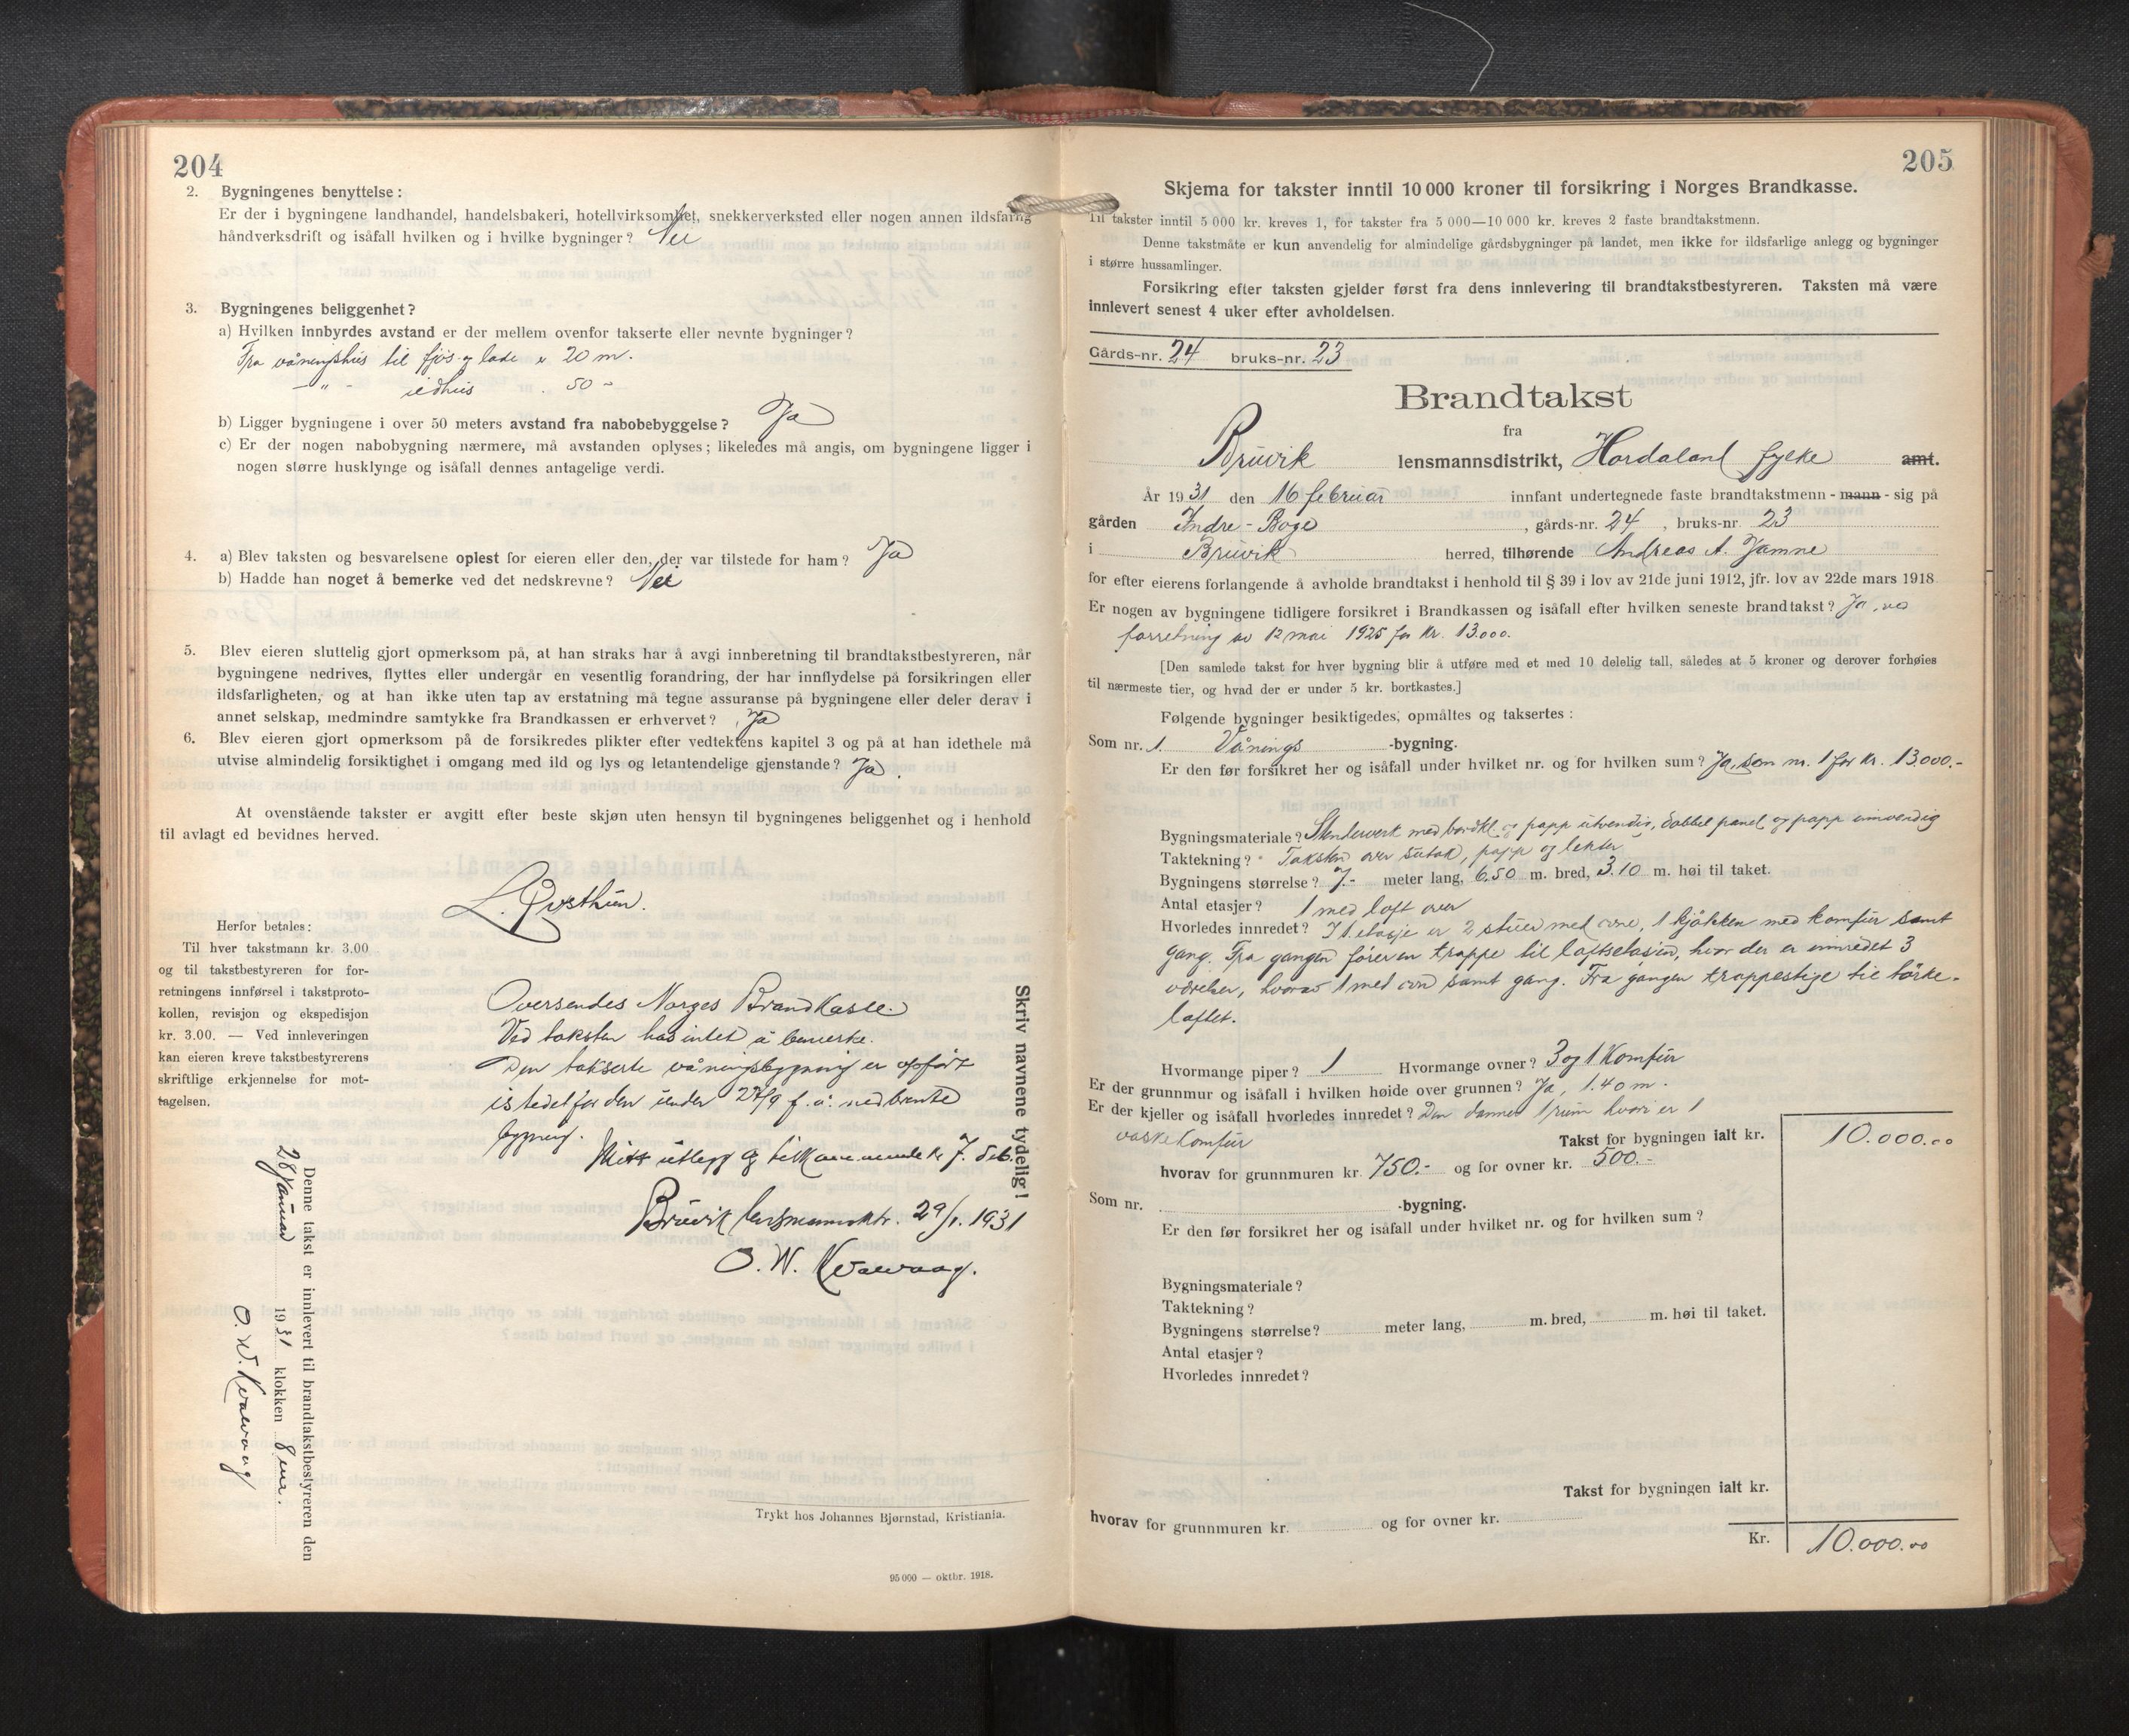 204
2. Bygningenes benyttelse:
Er der i bygningene landhandel, handelsbakeri, hotellvirksomhet, snekkerverksted eller nogen annen ildsfarlig
håndverksdrift og isåfall hvilken og i hvilke bygninger? Nei
3. Bygningenes beliggenhet?
a) Hvilken innbyrdes avstand er der mellem ovenfor takserte eller nevnte bygninger?
Fra våningshus til fjøs og lade er 20 m.
— " - uthus . 50 -
b) Ligger bygningene i over 50 meters avstand fra nabobebyggelse? Ja
c) Er der nogen nabobygning nærmere, må avstanden oplyses; likeledes må angis, om bygningene ligger i
nogen større husklynge og isåfall dennes antagelige verdi.
4. a) Blev taksten og besvarelsene oplest for eieren eller den, der var tilstede for ham? Ja
b) Hadde han noget å bemerke ved det nedskrevne? Nei
5. Blev eieren sluttelig gjort opmerksom på, at han straks har å avgi innberetning til brandtakstbestyreren, når
bygningene nedrives, flyttes eller undergår en vesentlig forandring, der har innflydelse på forsikringen eller
ildsfarligheten, og at han ikke uten tap av erstatning må tegne assuranse på bygningene eller deler derav i
annet selskap, medmindre samtykke fra Brandkassen er erhvervet? Ja
6. Blev eieren gjort opmerksom på de forsikredes plikter efter vedtektens kapitel 3 og på at han idethele må
utvise almindelig forsiktighet i omgang med ild og lys og letantendelige gjenstande? Ja.
At ovenstående takster er avgitt efter beste skjøn uten hensyn til bygningenes beliggenhet og i henhold
til avlagt ed bevidnes herved.
Herfor betales:
Til hver takstmann kr. 3.00
og til takstbestyreren for for-
retningens innførsel i takstproto-
kollen, revisjon og ekspedisjon
kr. 3.00. — Ved innleveringen
kan eieren kreve takstbestyrerens
skriftlige erkjennelse for mot-
tagelsen.
Oversendes Norges Brandkasse.
Ved taksten has intet å bemerke.
Den takserte våningsbygning er opført
istedetfor den under 27/9 f. å. nedbrente
bygning.
Mitt utlegg og tilkommende kr. 7.
Bruvik lensmannsktr. 29/1. 1931
O. W. Kvalvaag.
Skriv navnene tydelig!
Denne takst er innlevert til brandtakstbestyreren den
28 Januar 1931 klokken 8 em.
O. W. Kvalvaag
Trykt hos Johannes Bjørnstad, Kristiania.
95 000 — oktbr. 1918.
205
Skjema for takster inntil 10 000 kroner til forsikring i Norges Brandkasse.
Til takster inntil 5 000 kr. kreves 1, for takster fra 5 000—10 000 kr. kreves 2 faste brandtakstmenn.
Denne takstmåte er kun anvendelig for almindelige gårdsbygninger på landet, men ikke for ildsfarlige anlegg og bygninger
i større hussamlinger.
Forsikring efter taksten gjelder først fra dens innlevering til brandtakstbestyreren. Taksten må være
innlevert senest 4 uker efter avholdelsen.
Gårds-nr. 24 bruks-nr. 23
Brandtakst
fra
Bruvik lensmannsdistrikt, Hordaland fylke amt.
År 1931 den 16 februar innfant undertegnede faste brandtakstmenn - mann - sig på
gården Indre - Boge, gårds-nr. 24, bruks-nr. 23
i Bruvik herred, tilhørende Andreas A. Jamne
for efter eierens forlangende å avholde brandtakst i henhold til § 39 i lov av 21de juni 1912, jfr. lov av 22de mars 1918
Er nogen av bygningene tidligere forsikret i Brandkassen og isåfall efter hvilken seneste brandtakst? Ja, ved
forretning av 12 mai 1925 for kr. 13.000.
[Den samlede takst for hver bygning blir å utføre med et med 10 delelig tall, således at 5 kroner og derover forhøies
til nærmeste tier, og hvad der er under 5 kr. bortkastes.]
Følgende bygninger besiktigedes, opmåltes og taksertes:
Som nr. 1. Vånings -bygning.
Er den før forsikret her og isåfall under hvilket nr. og for hvilken sum? Ja, som nr. 1 for kr. 13.000.-
Bygningsmateriale? Stenderverk med bordkl. og papp utvendig, dobbel panel og papp innvendig
Taktekning? Taksten over sutak, papp og lekter
Bygningens størrelse? 7.- meter lang, 6,50 m. bred, 3.10 m. høi til taket.
Antal etasjer? 1 med loft over
Hvorledes innredet? I 1. etasje er 2 stuer med ovne, 1 kjøkken med komfür samt
gang. Fra gangen fører en trappe til loftsetasjen, hvor der er innredet 3
værelser, hvorav 1 med ovn samt gang. Fra gangen trappestige til tørke-
loftet.
Hvormange piper? 1 Hvormange ovner? 3 og 1 Komfür
Er der grunnmur og isåfall i hvilken høide over grunnen? Ja, 1.40 m.
Er der kjeller og isåfall hvorledes innredet? Den danner 1 rum hvori er 1
vaskekomfür Takst for bygningen ialt kr. 10.000.00
hvorav for grunnmuren kr. 750.- og for ovner kr. 500.-
Som nr. -bygning.
Er den før forsikret her og isåfall under hvilket nr. og for hvilken sum?
Bygningsmateriale?
Taktekning?
Bygningens størrelse? meter lang, m. bred, m. høi til taket.
Antal etasjer?
Hvorledes innredet?
Takst for bygningen ialt kr.
hvorav for grunnmuren kr. og for ovner kr.
Kr. 10.000.00